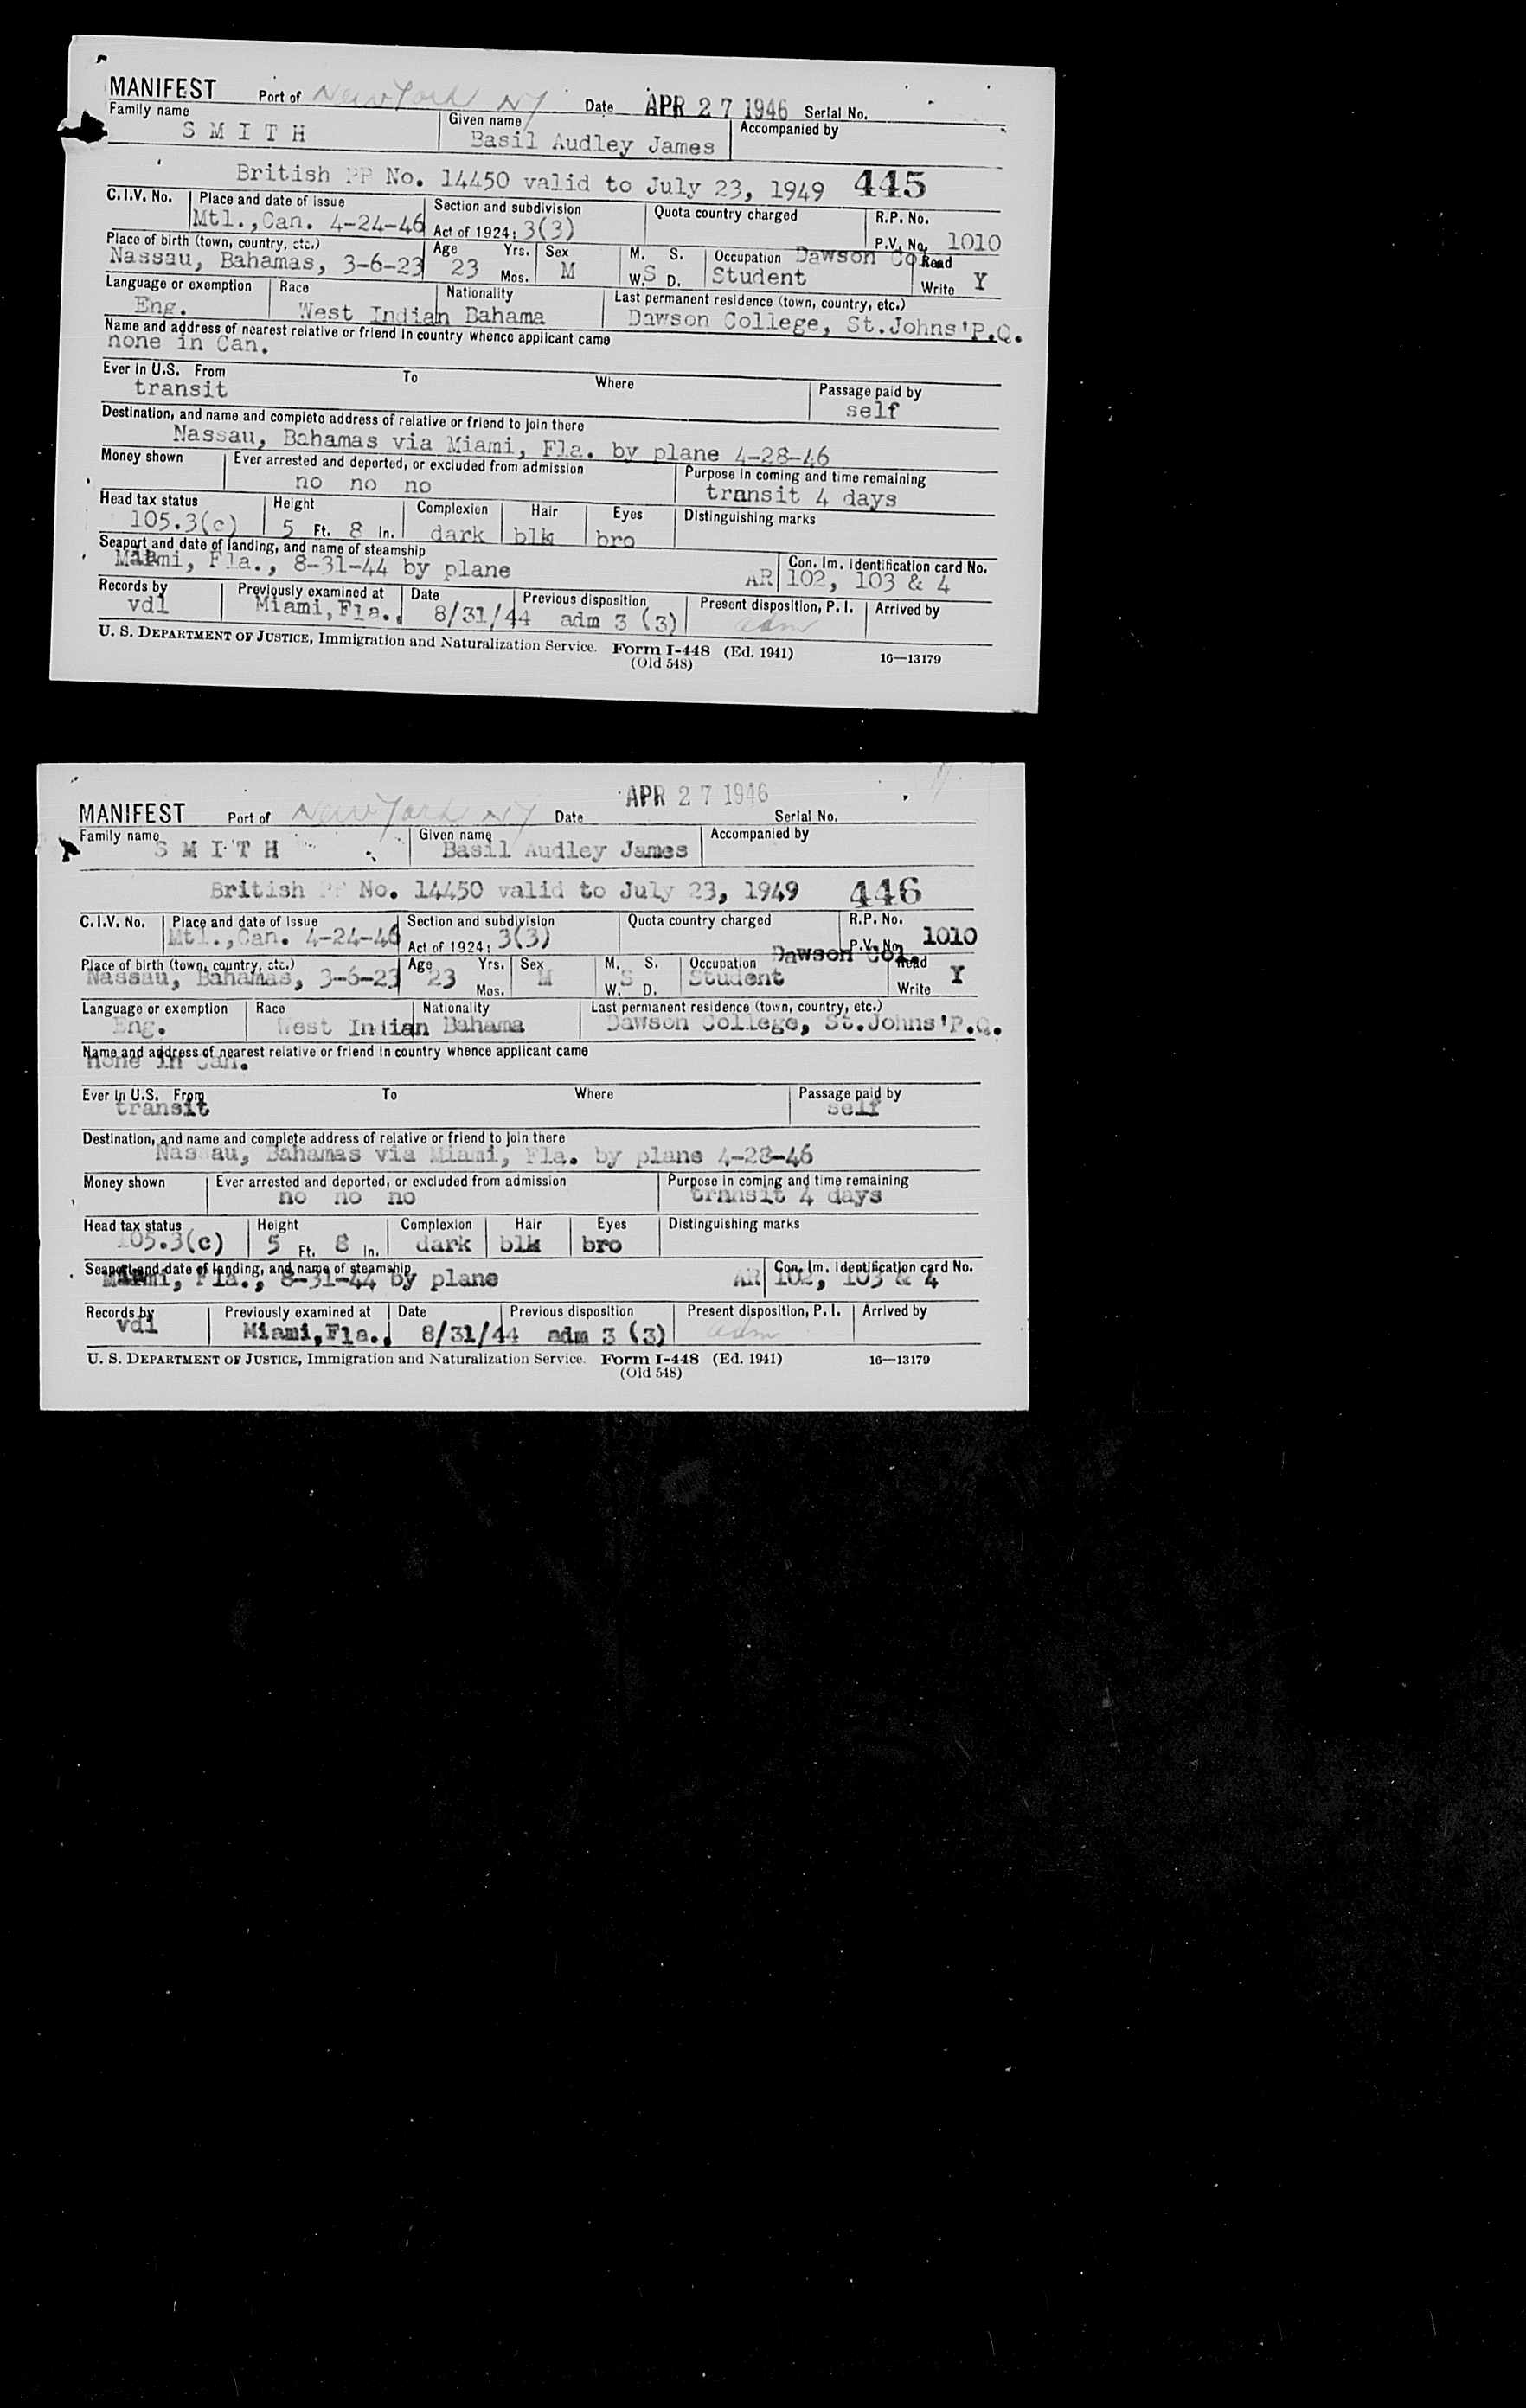 MANIFEST Port of New York NY Date APR 27 1946 Serial No.
Family name Given name Accompanied by
SMITH Basil Audley James
British PP No. 14450 valid to July 23, 1949 445
C.I.V. No. Place and date of issue Section and subdivision Quota country charged R.P. No.
Mtl., Can. 4-24-46 Act of 1924: 3(3) P.V. No. 1010
Place of birth (town, country, etc.) Age Yrs. Sex M. S. Occupation Dawson Co Read
Nassau, Bahamas, 3-6-23 23 Mos. M W. S D. Student Write Y
Language or exemption Race Nationality Last permanent residence (town, country, etc.)
Eng. West Indian Bahama Dawson College, St.Johns'P.Q.
Name and address of nearest relative or friend in country whence applicant came
none in Can.
Ever in U.S. From To Where Passage paid by
transit self
Destination, and name and complete address of relative or friend to join there
Nassau, Bahamas via Miami, Fla. by plane 4-28-46
Money shown Ever arrested and deported, or excluded from admission Purpose in coming and time remaining
no no no transit 4 days
Head tax status Height Complexion Hair Eyes Distinguishing marks
105.3(c) 5 Ft. 8 In. dark blk bro
Seaport and date of landing, and name of steamship Con. Im. identification card No.
Miami, Fla., 8-31-44 by plane AR 102, 103 & 4
Records by Previously examined at Date Previous disposition Present disposition, P. I. Arrived by
vdl Miami, Fla., 8/31/44 adm 3 (3) adm
U. S. DEPARTMENT OF JUSTICE, Immigration and Naturalization Service. Form I-448 (Ed. 1941) 16—13179
(Old 548)
MANIFEST Port of New York NY Date APR 27 1946 Serial No.
Family name Given name Accompanied by
SMITH Basil Audley James
British PP No. 14450 valid to July 23, 1949 446
C.I.V. No. Place and date of issue Section and subdivision Quota country charged R.P. No.
Mtl., Can. 4-24-46 Act of 1924: 3(3) P.V. No. 1010
Place of birth (town, country, etc.) Age Yrs. Sex M. S. Occupation Dawson Col. Read
Nassau, Bahamas, 3-6-23 23 Mos. M W. S D. Student Write Y
Language or exemption Race Nationality Last permanent residence (town, country, etc.)
Eng. West Indian Bahama Dawson College, St.Johns'P.Q.
Name and address of nearest relative or friend in country whence applicant came
none in Can.
Ever in U.S. From To Where Passage paid by
transit self
Destination, and name and complete address of relative or friend to join there
Nassau, Bahamas via Miami, Fla. by plane 4-28-46
Money shown Ever arrested and deported, or excluded from admission Purpose in coming and time remaining
no no no transit 4 days
Head tax status Height Complexion Hair Eyes Distinguishing marks
105.3(c) 5 Ft. 8 In. dark blk bro
Seaport and date of landing, and name of steamship Con. Im. identification card No.
Miami, Fla., 8-31-44 by plane AR 102, 103 & 4
Records by Previously examined at Date Previous disposition Present disposition, P. I. Arrived by
vdl Miami, Fla., 8/31/44 adm 3 (3) adm
U. S. DEPARTMENT OF JUSTICE, Immigration and Naturalization Service. Form I-448 (Ed. 1941) 16—13179
(Old 548)